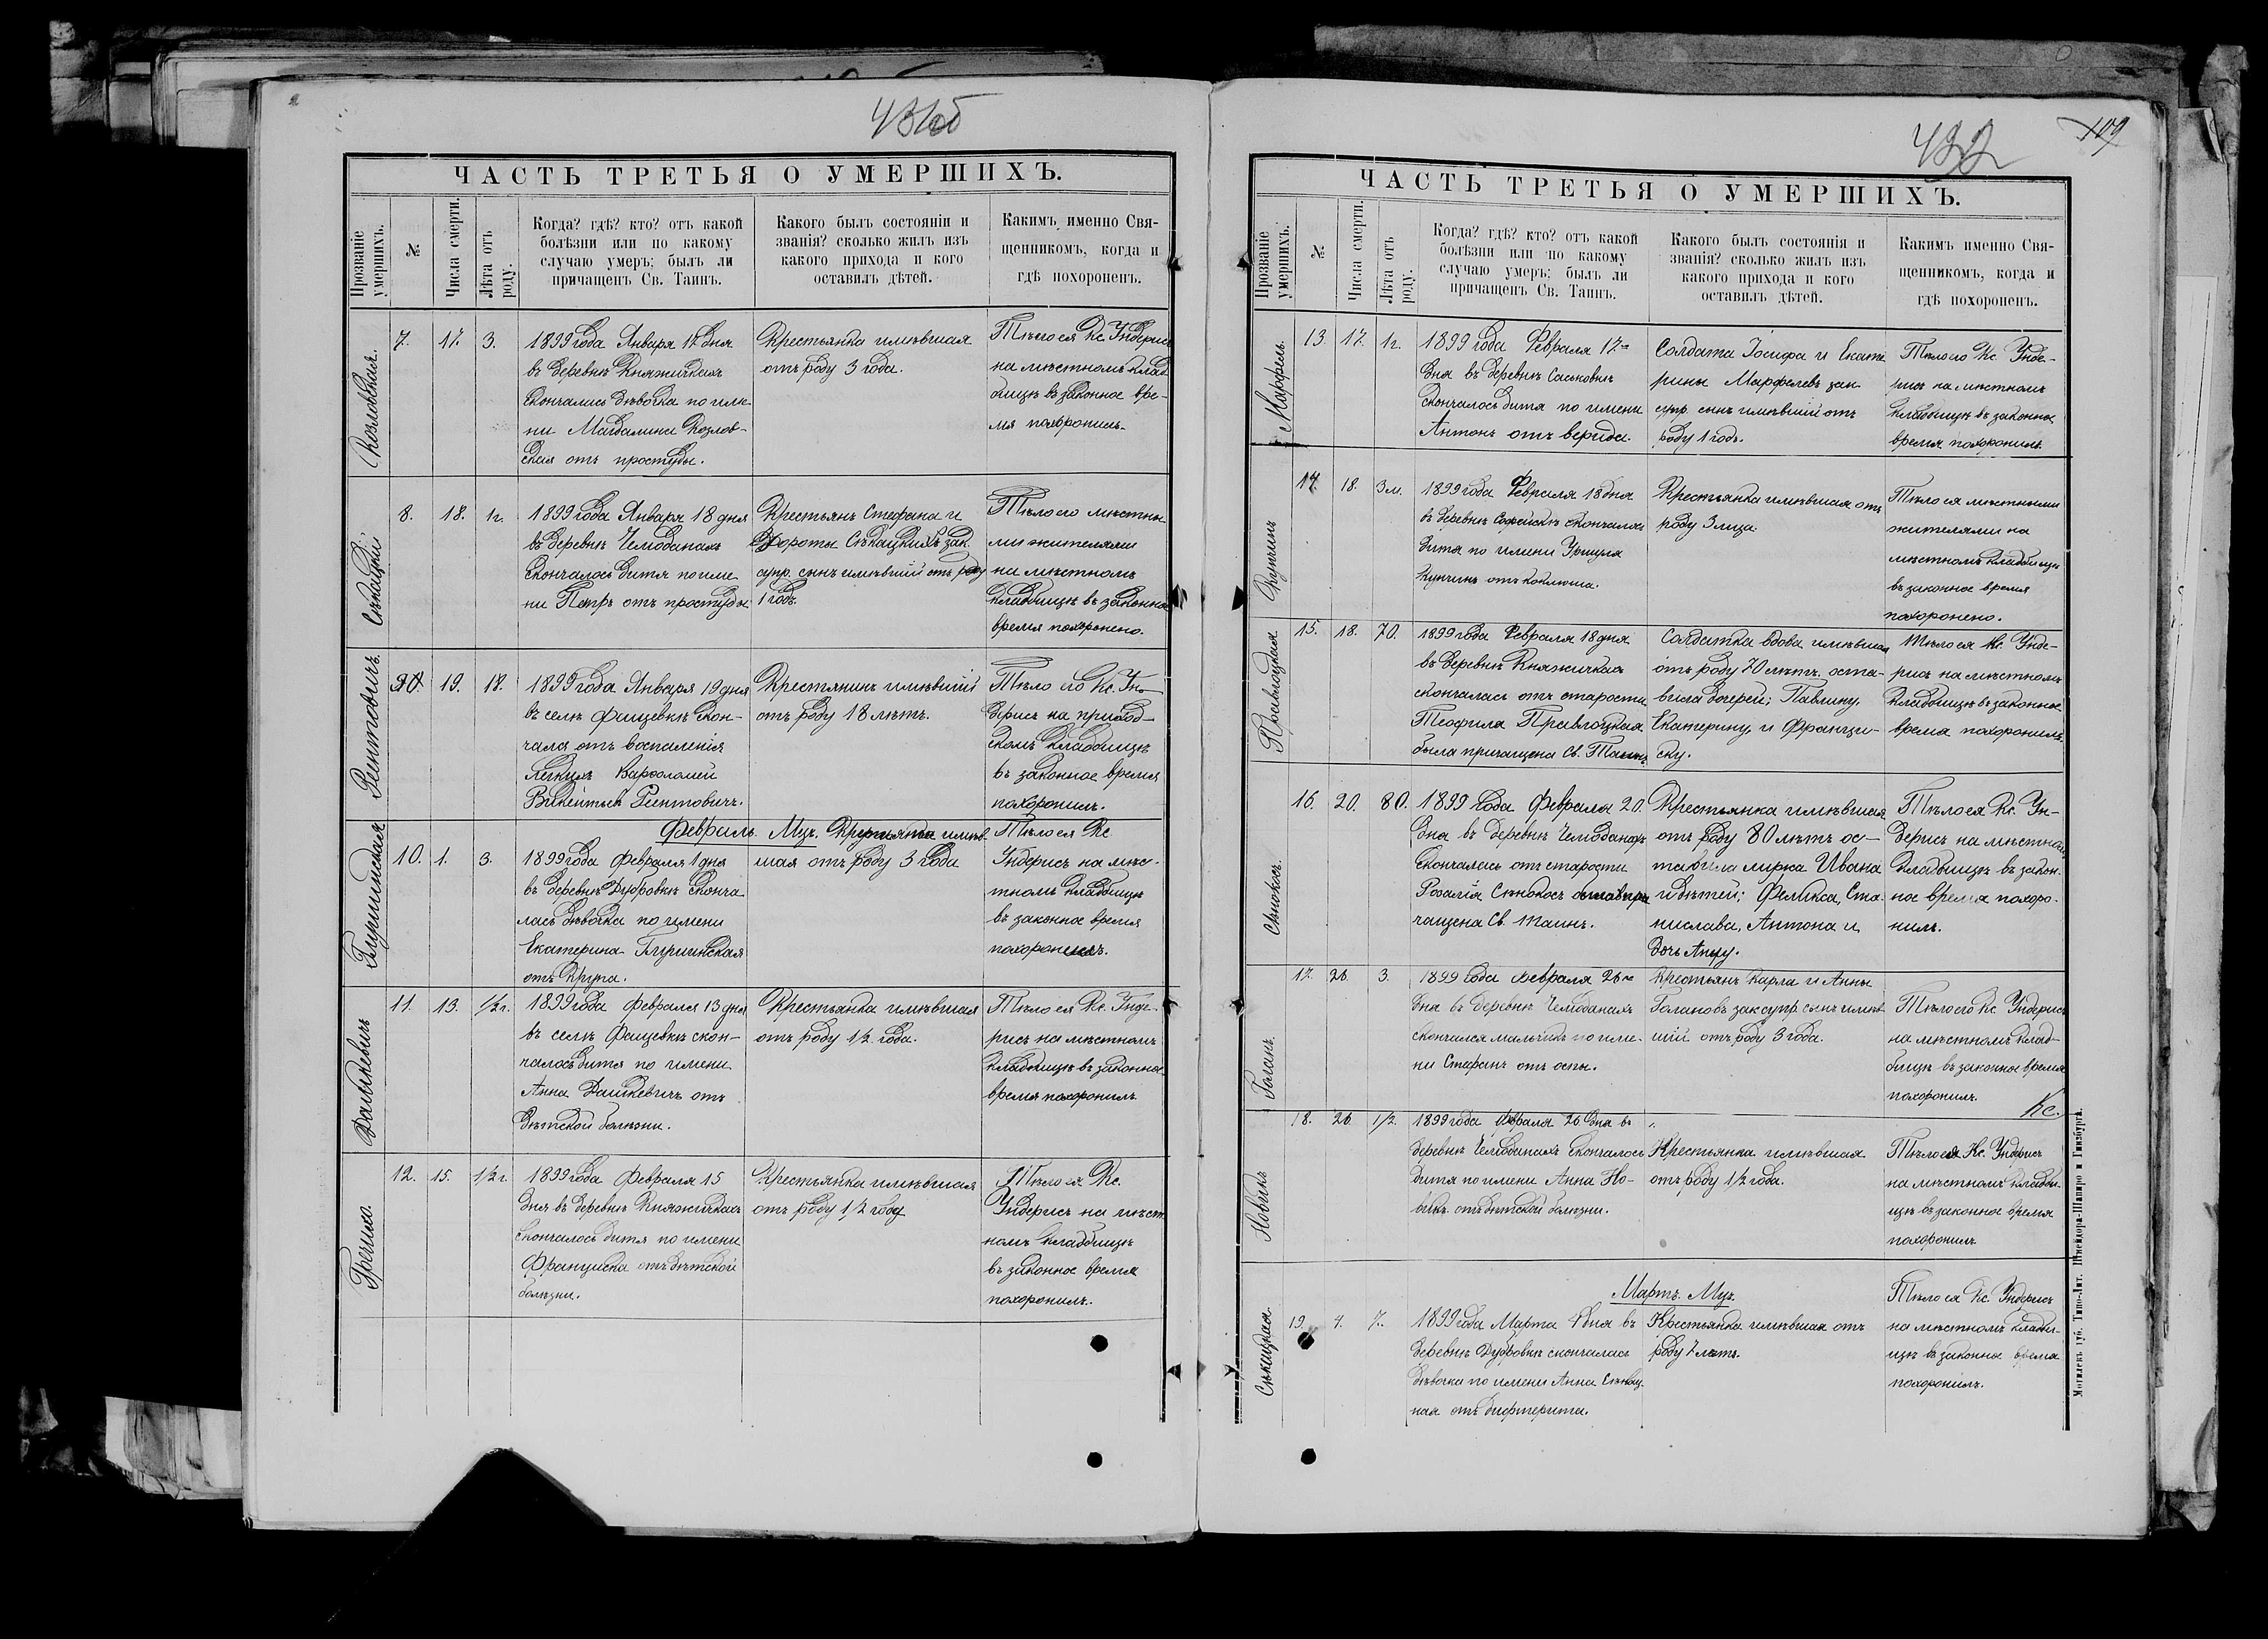 431об
ЧАСТЬ ТРЕТЬЯ О УМЕРШИХЪ.
Прозваніе умершихъ.
№
Числа смерти.
Лѣта отъ роду.
Когда? гдѣ? кто? отъ какой
болѣзни или по какому
случаю умеръ; былъ ли
причащенъ Св. Таинъ.
Какого былъ состояніи и
званія? сколько жилъ изъ
какого прихода и кого
оставилъ дѣтей.
Какимъ именно Свя-
щенникомъ, когда и
гдѣ похороненъ.
Козловская.
7.
17.
3.
1899 года Января 17 дня
въ деревнѣ Княжичкахъ
скончалась дѣвочка по име-
ни Магдалина Козлов-
ская отъ простуды.
Крестьянка имѣвшая
отъ роду 3 года.
Тѣло ея Кс. Ундерись
на мѣстномъ клад-
бищѣ въ законное вре-
мя похоронилъ.
Сѣкацкій.
8.
18.
1г.
1899 года Января 18 дня
въ деревнѣ Чемоданахъ
скончалось дитя по име-
ни Петръ отъ простуды
Крестьянъ Стефана и
Дороты Сѣкацкихъ зак.
супр. сынъ имѣвшій отъ роду
1 годъ.
Тѣло его мѣстны-
ми жителями
на мѣстномъ
кладбищѣ въ законное
время похоронено.
Рентовичъ.
19.
18.
1899 года Января 19 дня
въ селѣ Фащевкѣ скон-
чался отъ воспаленія
легкихъ Варфоломей
Рентовичъ.
Крестянинъ имѣвшій
отъ роду 18 лѣтъ.
Тѣло его Кс. Ун-
дерисъ на приход-
скомъ кладбищѣ
въ законное время
похоронилъ.
Февраль. Мцъ.
10.
1.
3.
1899 года Февраля 1 дня
въ деревнѣ Дубровкѣ сконча-
лась дѣвочка по имени
Екатерина
отъ крупа.
Крестьянка имѣв-
шая отъ роду 3 года
Тѣло ея Кс.
Ундерисъ на мѣс-
тномъ кладбищѣ
въ законное время
похоронилъ.
Дашкевичъ
11.
13.
1/2 г.
1899 года Февраля 13 дня
въ селѣ Фащевкѣ скон-
чалось дитя по имени
Анна Дашкевичъ отъ
дѣтской болѣзни.
Крестьянка имѣвшая
отъ роду 1/2 года.
Тѣло ея Кс. Унде-
рисъ на мѣстномъ
кладбищѣ въ законное
время похоронилъ
Гречихо.
12.
15.
1/2 г.
1899 года Февраля 15
дня въ деревнѣ Княжичкахъ
скончалось дитя по имени
Франциска отъ дѣтской
болѣзни.
Крестьянка имѣвшая
отъ роду 1/2 году
Тѣло ея Кс.
Ундерисъ на мѣст-
номъ кладбищѣ
въ законное время
похоронилъ.
432
109
ЧАСТЬ ТРЕТЬЯ О УМЕРШИХЪ.
Прозваніе умершихъ.
№
Числа смерти.
Лѣта отъ роду.
Когда? гдѣ? кто? отъ какой
болѣзни или по какому
случаю умеръ; былъ ли
причащенъ Св. Таинъ.
Какого былъ состоянія и
званія? сколько жилъ изъ
какого прихода и кого
оставилъ дѣтей.
Какимъ именно Свя-
щенникомъ, когда и
гдѣ похороненъ.
Марфель.
13.
17.
1г.
1899 года Февраля 17-
дня въ деревнѣ Саськовкѣ
скончалось дитя по имени
Антонъ отъ вереда.
Солдата Іосифа и Екате-
рины Марфелевъ зак.
супр. сынъ имѣвшій отъ
роду 1 годъ.
Тѣло его Кс. Унде-
рисъ на мѣстномъ
кладбищѣ въ законное
время похоронилъ
Купчинъ
14.
18.
3 м.
1899 года Февраля 18 дня
въ деревнѣ Софейскѣ скончалось
дитя по имени Уршуля
Купчинъ отъ коклюша.
Крестьянка имѣвшая отъ
роду 3 м-ца.
Тѣло ея мѣстными
жителями на
мѣстномъ кладбищѣ
въ законное время
похоронено.
Правлоцкая
15.
18.
70.
1899 года Февраля 18 дня
въ деревнѣ Княжичкахъ
скончалась отъ старости
Теофила Правлоцкая
была причащена Св. Таинъ.
Солдатка вдова имѣвшая
отъ роду 70 лѣтъ. оста-
вила дочерей; Павлину,
Екатерину и Францис-
ску.
Тѣло ея Кс. Унде-
рисъ на мѣстномъ
кладбищѣ въ законное
время похоронилъ.
Сѣнокосъ.
16.
20.
80.
1899 года Февраля 20.
дня въ деревнѣ Чемоданахъ
скончалась отъ старости
Розалія Сѣнокосъ была при-
чащена Св. Таинъ.
Крестьянка имѣвшая
отъ роду 80 лѣтъ ос-
тавила мужа Ивана
и дѣтей; Феликса, Ста-
нислава, Антона и
дочь Анну.
Тѣло ея Кс. Ун-
дерисъ на мѣстномъ
кладбищѣ въ закон-
ное время похоро-
нилъ.
Галанъ.
17.
26.
3.
1899 года Февраля 26-
дня въ деревнѣ Чемоданахъ
скончался мальчикъ по име-
ни Стефанъ отъ оспы.
Крестьянъ Карла и Анны
Галановъ зак супр. сынъ имѣв-
шій отъ роду 3 года.
Тѣло его Кс. Ундерисъ
на мѣстномъ клад-
бищѣ въ законное время
похоронилъ.
Кс.
Новикъ
18.
26.
1/2.
1899 года Февраля 26 дня въ
деревнѣ Чемоданахъ скончалось
дитя по имени Анна Но-
викъ. отъ дѣтской болѣзни.
Крестьянка имѣвшая
отъ роду 1/2 года.
Тѣло ея Кс. Ундерисъ
на мѣстномъ кладби-
щѣ въ законное время
похоронилъ
Мартъ. Мцъ.
Сѣкацкая.
19.
4.
7.
1899 года Марта 4 дня въ
деревнѣ Дубровкѣ скончалась
дѣвочка по имени Анна Сѣкац-
кая отъ дифтерита.
Крестьянка имѣвшая отъ
роду 7 лѣтъ.
Тѣло ея Кс. Ундерисъ
на мѣстномъ кладби-
щѣ въ законное время
похоронилъ.
Могилевъ губ. Типо-Лит. Шнейдора-Шапиро и Гинзбурга.